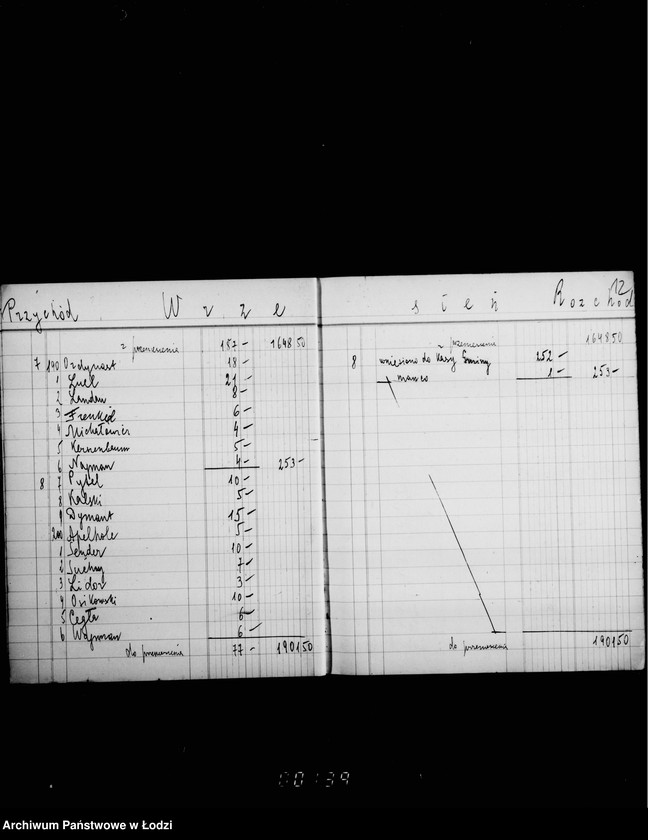 Przychód W r z e
z przeniesienia 187 - 1648 50
7 190 Ordynast 18 -
1 Luel 21 -
2 Landau 8 -
3 Frenkiel 6 -
4 Michałowicz 4 -
5 Kersenbaum 5 -
6 Najman 4 - 253 -
8 7 Pytel 10 -
8 Kolski 5 -
9 Dymant 15 -
200 Apelhole 5 -
1 Sender 10 -
2 Suchy 7 -
3 Lidor 3 -
4 Osikowski 10 -
5 Cegła 6 -
6 Wajman 6 -
do przeniesienia 77 - 1901 50
12
s i e ń Rozchód
z przeniesienia 1648 50
8 wniesiono do Kasy Gminy 252 -
manco 1 - 253 -
do przeniesienia 1901 50
00139
Archiwum Państwowe w Łodzi